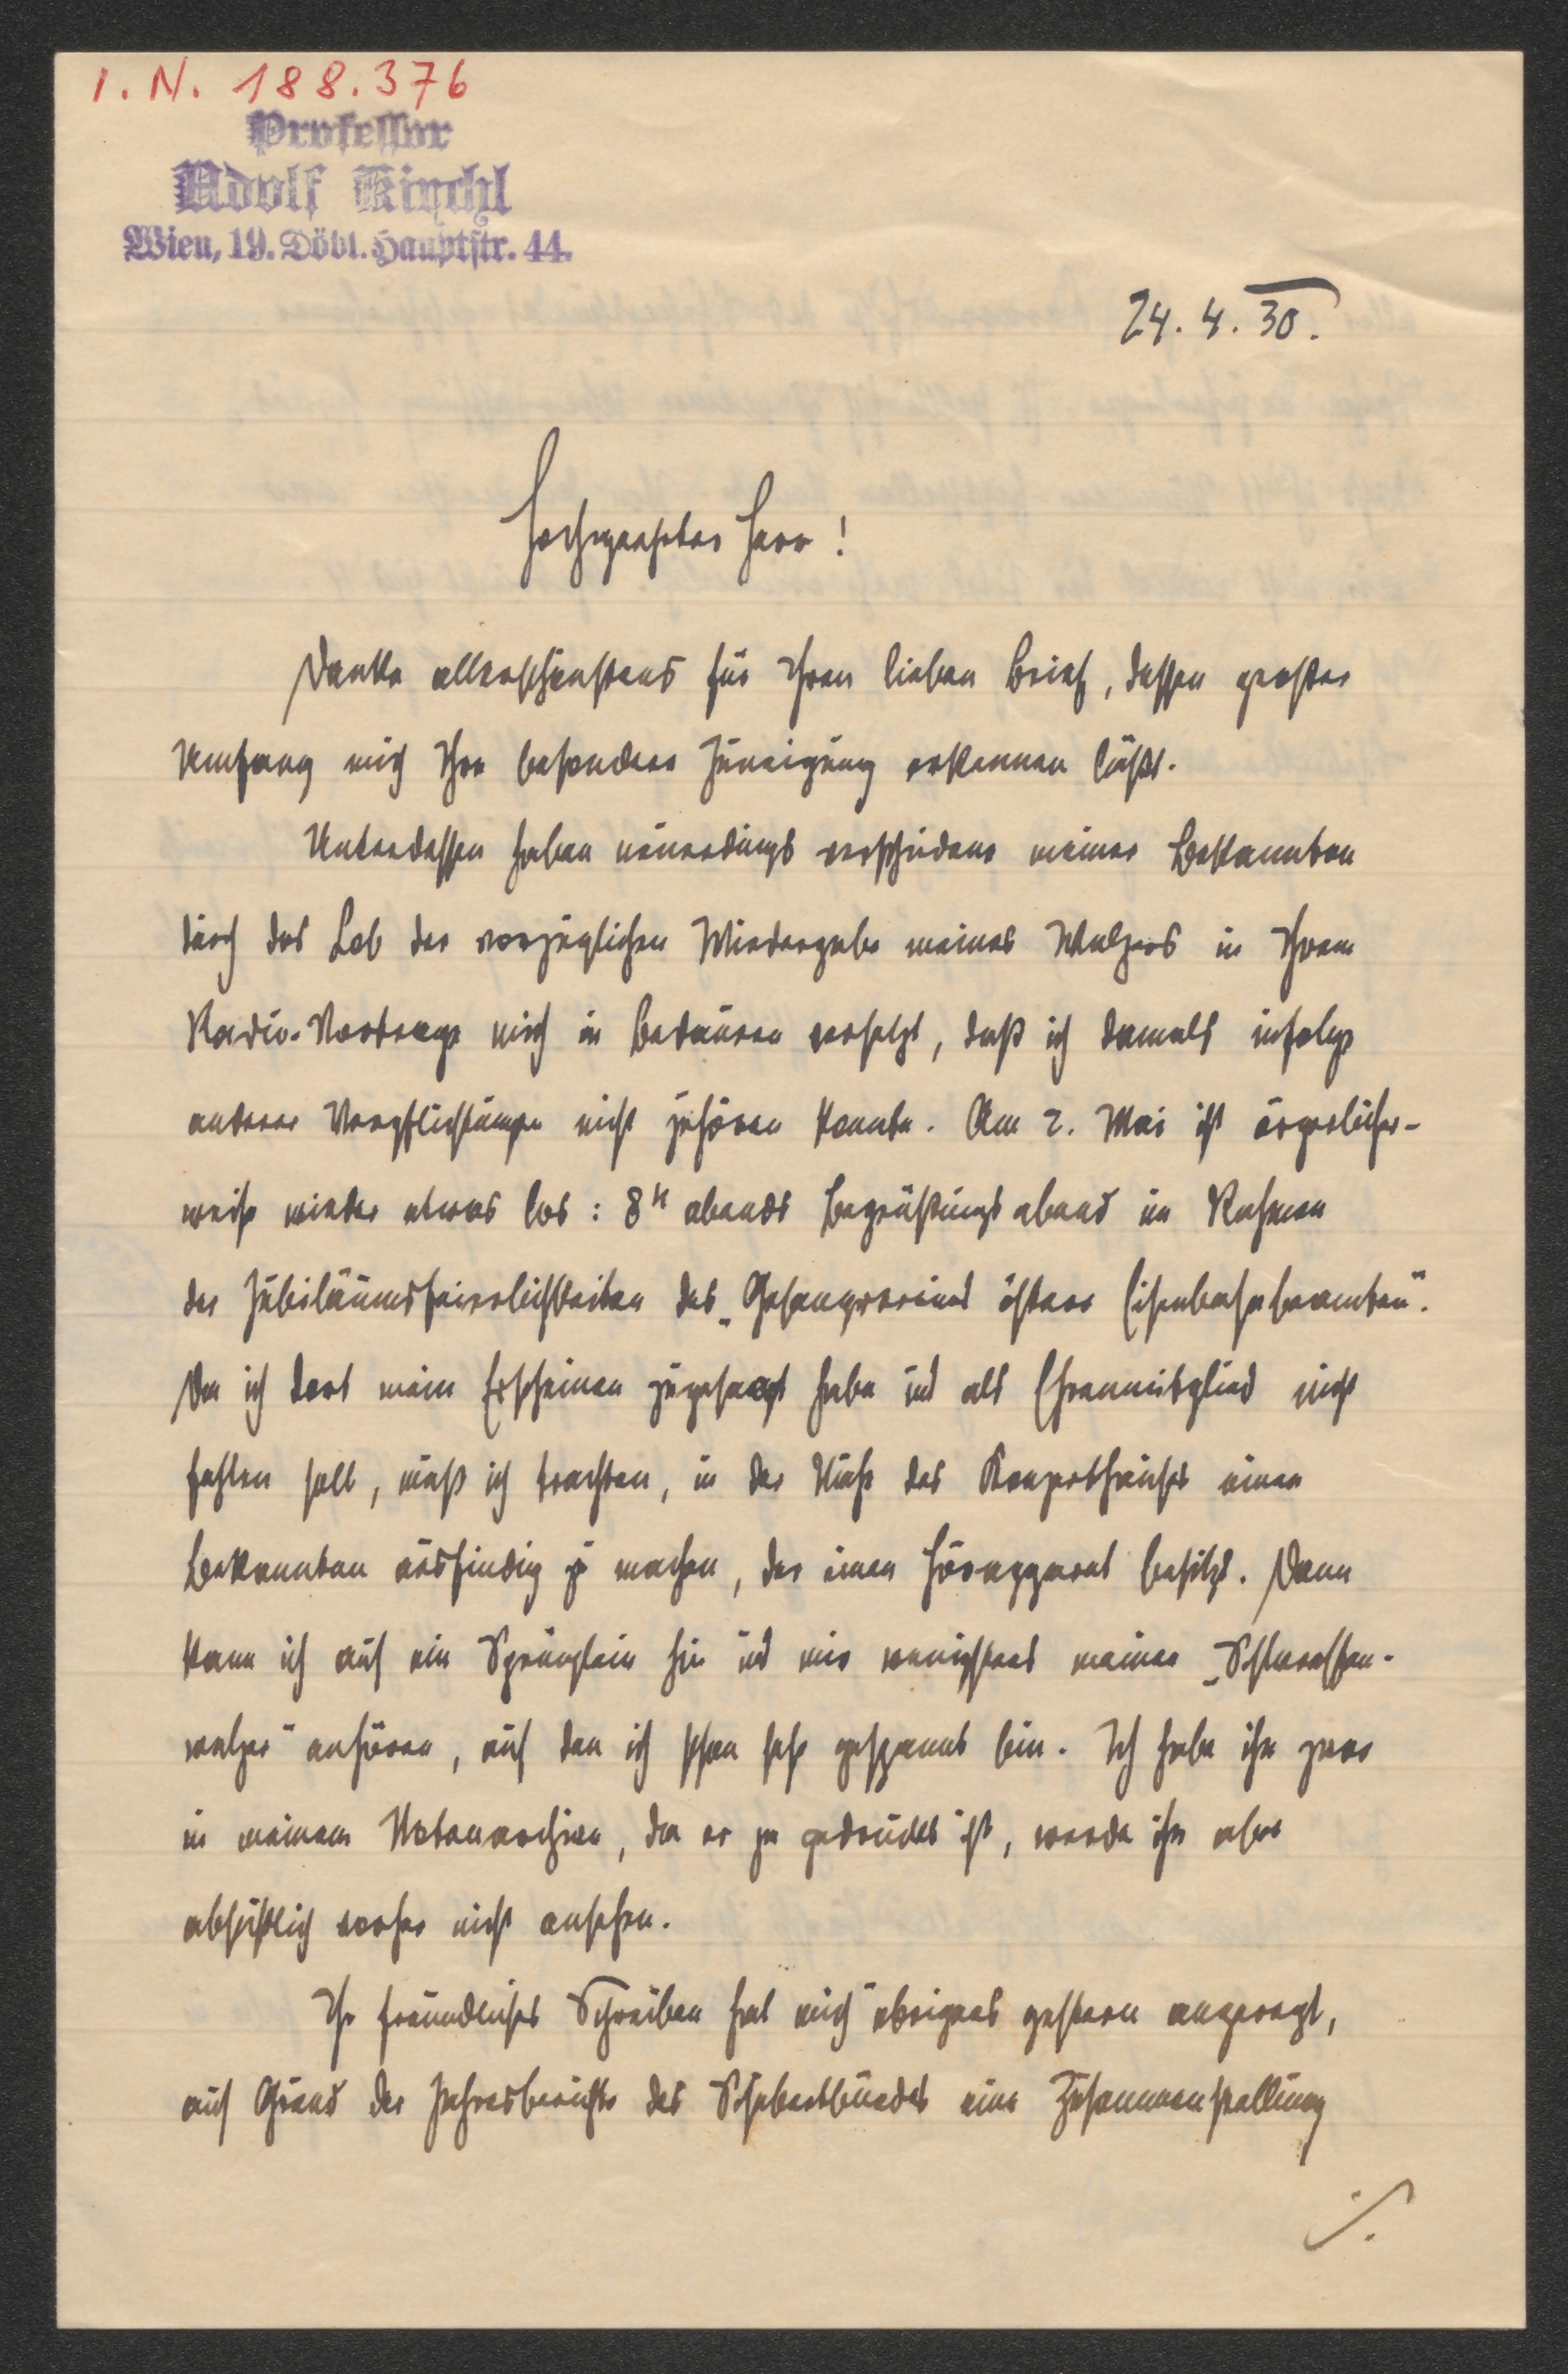 I. N. 188.376
Professor
Adolf Kirchl
Wien, 19. Döbl. Hauptstr. 44.
24. 4. 30.
Hochgeehrter Herr!
Danke allerschönstens für Ihren lieben Brief, dessen großer
Umfang mich Ihre besondere Zuneigung erkennen läßt.
Unterdessen haben neuerdings verschiedene meiner Bekannten
durch das Lob der vorzüglichen Wiedergabe meines Walzers in Ihrem
Radio-Vortrage mich in Bedauern versetzt, daß ich damals infolge
anderer Verpflichtungen nicht zuhören konnte. Am 2. Mai ist ärgerlicher-
weise wieder etwas los: 8h abends Begrüßungsabend im Rahmen
der Jubiläumsfeierlichkeiten des „Gesangvereines österr Eisenbahnbeamten".
Da ich dort mein Erscheinen zugesagt habe und als Ehrenmitglied nicht
fehlen soll, muß ich trachten, in der Nähe des Konzerthauses einen
Bekannten ausfindig zu machen, der einen Hörapparat besitzt. Dann
kann ich auf ein Sprünglein hin und mir wenigstens meinen „Schlaraffen-
walzer" anhören, auf den ich schon sehr gespannt bin. Ich habe ihn zwar
in meinem Notenarchive, da er ja gedruckt ist, werde ihn aber
absichtlich vorher nicht ansehen.
Ihr freundliches Schreiben hat mich übrigens gestern angeregt,
auf Grund der Jahresberichte des Schubertbundes eine Zusammenstellung
./.